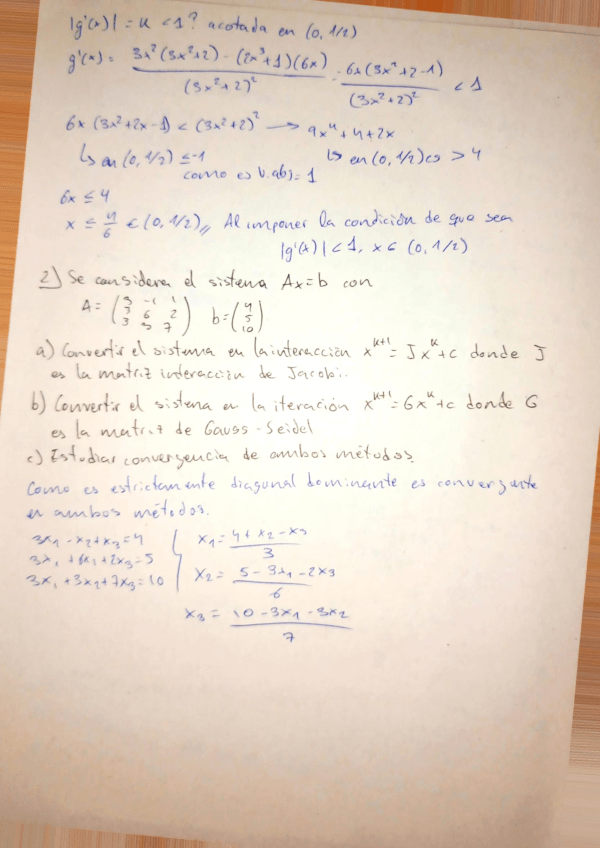 |g'(x)| = K < 1? acotada en (0, 1/2)
g'(x) = 3x²(3x²+2) - (2x³+1)(6x) / (3x²+2)² = 6x(3x²+2-1) / (3x²+2)² < 1
6x(3x²+2x-1) < (3x²+2)² → 9x⁴+4+2x
↳ en (0, 1/2) ≤ -1 ↳ en (0, 1/2) es > 4
como es v.abs = 1
6x ≤ 4
x ≤ 4/6 ∈ (0, 1/2),, Al imponer la condición de que sea
|g'(x)| < 1, x ∈ (0, 1/2)
2) Se considera el sistema Ax=b con
A = (3 -1 1
3 6 2
3 3 7) b = (4
5
10)
a) Convertir el sistema en la interacción x^{k+1} = Jx^k + c donde J
es la matriz interacción de Jacobi.
b) Convertir el sistema en la iteración x^{k+1} = Gx^k + c donde G
es la matriz de Gauss-Seidel
c) Estudiar convergencia de ambos métodos.
Como es estrictamente diagonal dominante es convergente
en ambos métodos.
3x₁ - x₂ + x₃ = 4
3x₁ + 6x₂ + 2x₃ = 5
3x₁ + 3x₂ + 7x₃ = 10
x₁ = 4 + x₂ - x₃ / 3
x₂ = 5 - 3x₁ - 2x₃ / 6
x₃ = 10 - 3x₁ - 3x₂ / 7